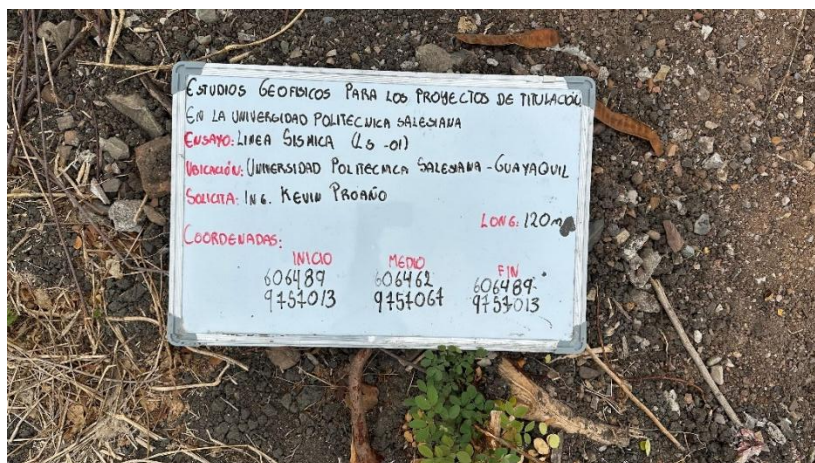 ESTUDIOS GEOFISICOS PARA LOS PROYECTOS DE TITULACIÓN
EN LA UNIVERSIDAD POLITECNICA SALESIANA
ENSAYO: LINEA SISMICA (LS -01)
UBICACIÓN: UNIVERSIDAD POLITECNICA SALESIANA - GUAYAQUIL
SOLICITA: ING. KEVIN PROAÑO
LONG: 120m
COORDENADAS:
INICIO MEDIO FIN
606489 606462 606489
9757013 9757067 9757013